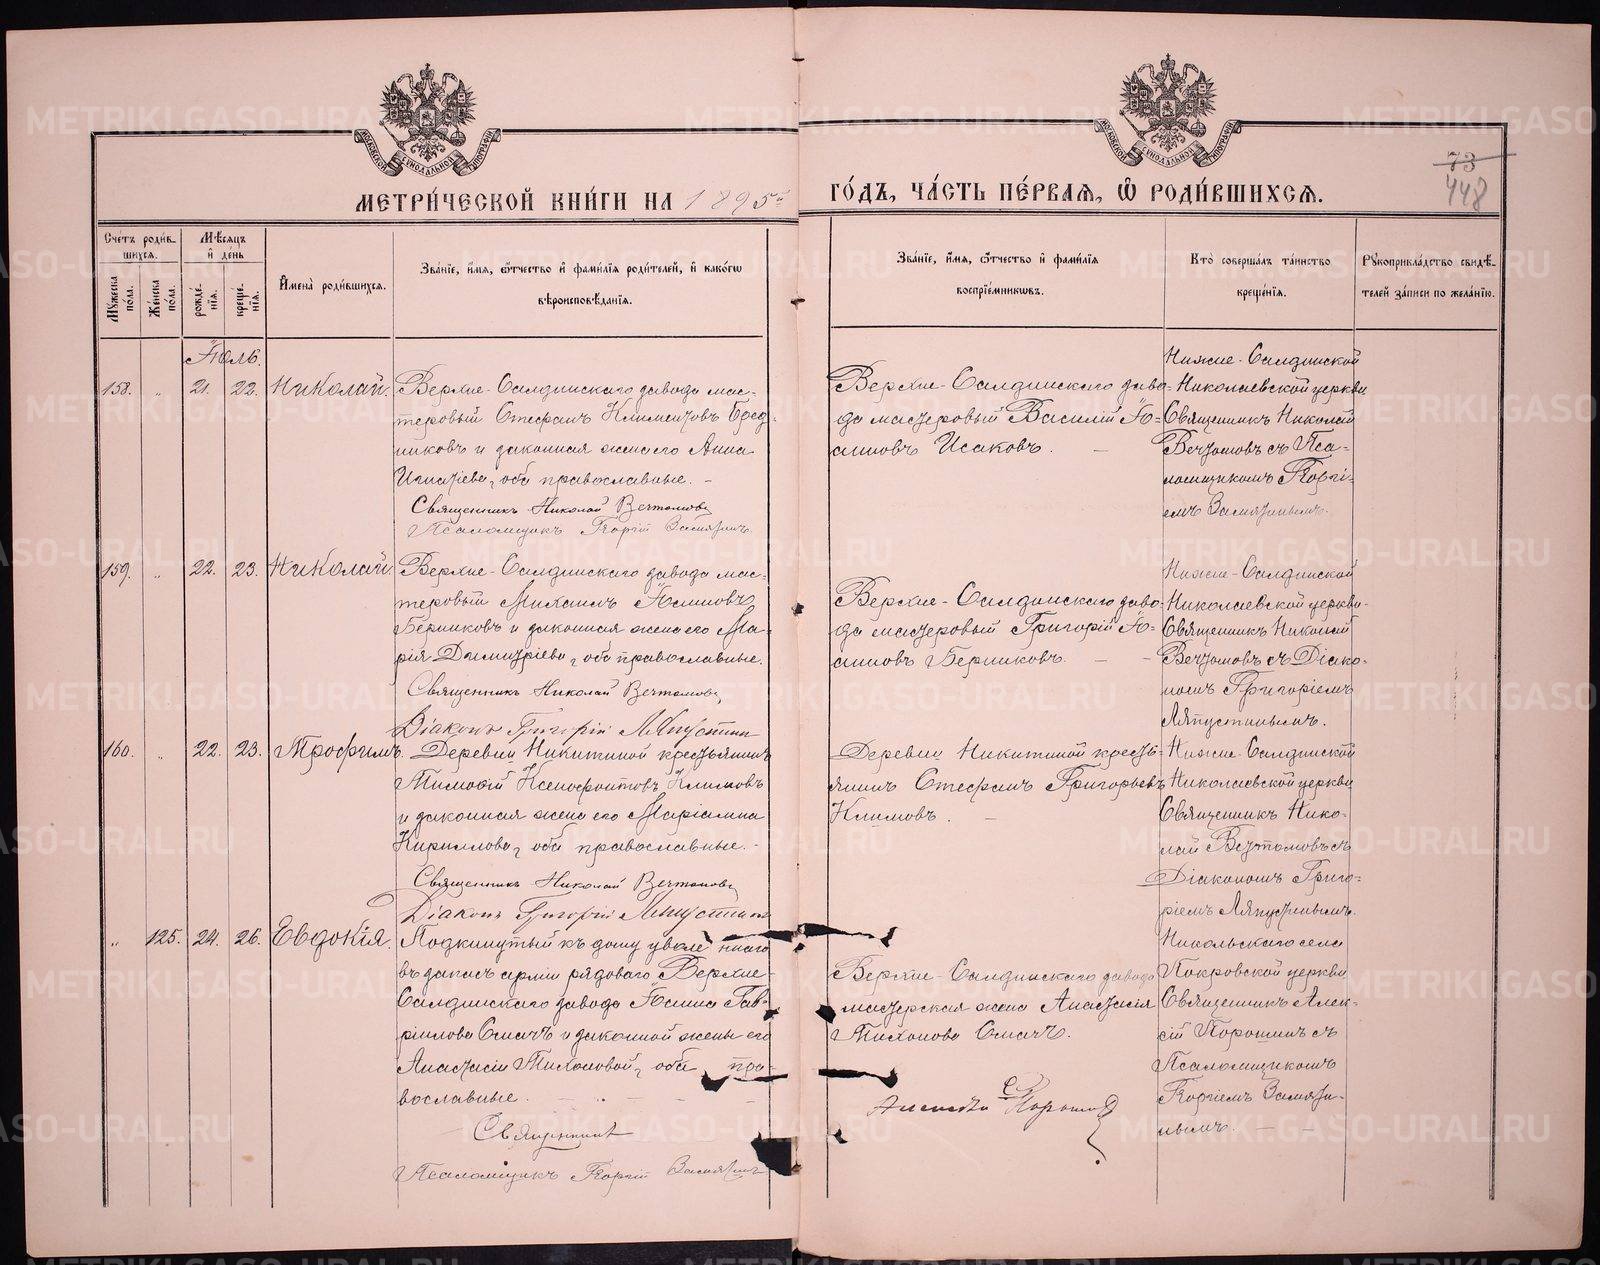 73
448
МЕТРИ́ЧЕСКОЙ КНИ́ГИ НА 1895й ГО́ДЪ, ЧА́СТЬ ПЕ́РВАЯ, Ѡ РОДИ́ВШИХСЯ.
Сче́тъ роди́в-
шихся.
Мѣ́сяцъ
и҆ де́нь
Му́жеска
пола.
Же́нска
пола.
рожде́-
нїя.
креще́-
нїя.
И҆мена̀ роди́вшихся.
Зва́нїе, и҆́мя, ѻ҆́тчество и҆ фами́лїя роди́телей, и҆ како́гѡ
вѣроисповѣ́данїя.
Зва́нїе, и҆́мя, ѻ҆́тчество и҆ фами́лїя
воспрїе́мникѡвъ.
Кто̀ соверша́лъ та́инство
креще́нїя.
Рукоприкла́дство свидѣ́-
телей за́писи по жела́нїю.
Іюль.
158. " 21. 22. Николай.
Верхне-Салдинскаго завода мас-
теровый Стефанъ Климентовъ Бред-
никовъ и законная жена его Анна
Игнатіева, оба православные. -
Священникъ Николай Вечтомовъ
Псаломщикъ Георгій Замятинъ
Верхне-Салдинскаго заво-
да мастеровый Василій Іо-
анновъ Исаковъ. -
Нижне-Салдинской
Николаевской церкви
Священникъ Николай
Вечтомовъ съ Пса-
ломщикомъ Георгі-
емъ Замятинымъ.
159. " 22. 23. Николай.
Верхне-Салдинскаго завода мас-
теровый Михаилъ Іоанновъ
Берниковъ и законная жена его Ма-
рія Димитріева, оба православные.
Священникъ Николай Вечтомовъ
Діаконъ Григорій Ляпустинъ
Верхне-Салдинскаго заво-
да мастеровый Григорій Іо-
анновъ Берниковъ. - -
Нижне-Салдинской
Николаевской церкви
Священникъ Николай
Вечтомовъ съ Діако-
номъ Григоріемъ
Ляпустинымъ.
160. " 22. 23. Трофимъ.
Деревни Никитиной крестьянинъ
Тимофей Ксенофонтовъ Климовъ
и законная жена его Маріамна
Кириллова, оба православные. -
Священникъ Николай Вечтомовъ
Діаконъ Григорій Ляпустинъ
Деревни Никитиной кресть-
янинъ Стефанъ Григорьевъ
Климовъ. -
Нижне-Салдинской
Николаевской церкви
Священникъ Нико-
лай Вечтомовъ съ
Діакономъ Григо-
ріемъ Ляпустинымъ.
" 125. 24. 26. Евдокія.
Подкинутый къ дому уволеннаго
въ запасъ арміи рядоваго Верхне-
Салдинскаго завода Іоанна Гав-
ріилова и законной жены его
Анастасіи Тихоновой, оба пра-
вославные. - - -
Священникъ
Псаломщикъ Георгій Замятинъ
Верхне-Салдинскаго завода
мастерская жена Анастасія
Тихонова
Порошинъ
Никольскаго села
Покровской церкви
Священникъ Алек-
сій Порошинъ съ
Псаломщикомъ
Георгіемъ Замяти-
нымъ. - -
МОСКОВСКОЙ СѴНОДАЛЬНОЙ ТИПОГРАФІИ
МОСКОВСКОЙ СѴНОДАЛЬНОЙ ТИПОГРАФІИ
METRIKI.GASO-URAL.RU